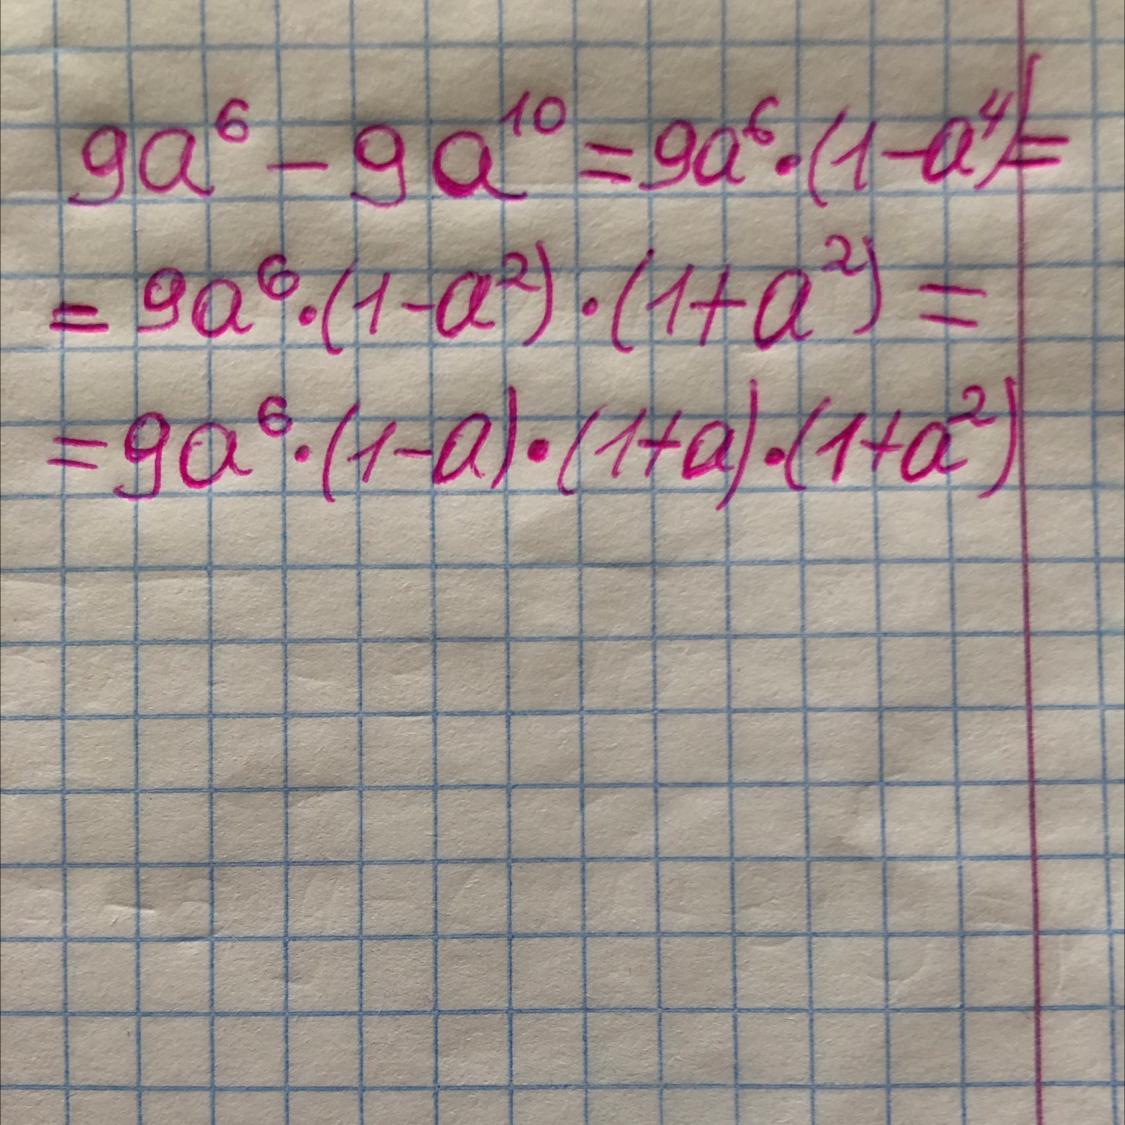 9a⁶ - 9a¹⁰ = 9a⁶·(1-a⁴)=
= 9a⁶·(1-a²)·(1+a²) =
= 9a⁶·(1-a)·(1+a)·(1+a²)